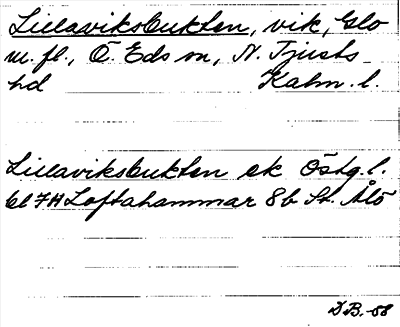 Lillaviksbukten, vik, Glo
m.fl., Ö. Eds sn, N. Tjusts
hd Kalm. l.
Lillaviksbukten ek Östg. l.
bl 7H Loftahammar 8b St. Ålö
D B. -58